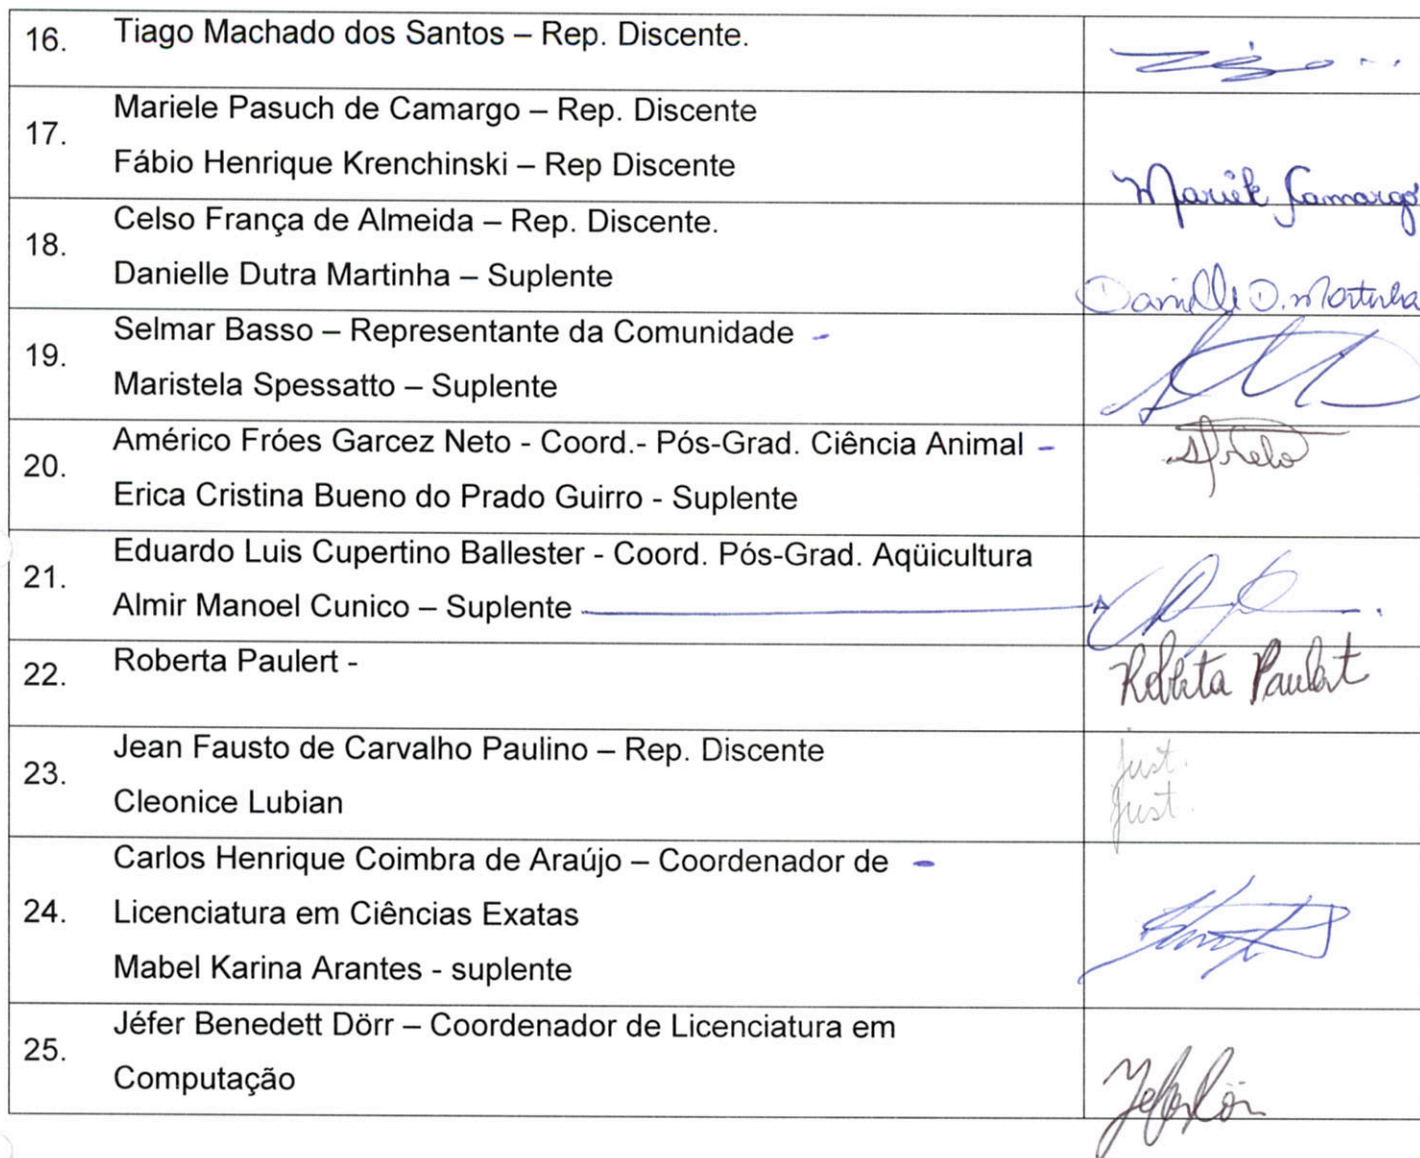 16. Tiago Machado dos Santos – Rep. Discente.
17. Mariele Pasuch de Camargo – Rep. Discente
Fábio Henrique Krenchinski – Rep Discente
Mariele Camargo
18. Celso França de Almeida – Rep. Discente.
Danielle Dutra Martinha – Suplente
Danielle D. Martinha
19. Selmar Basso – Representante da Comunidade -
Maristela Spessatto – Suplente
20. Américo Fróes Garcez Neto - Coord.- Pós-Grad. Ciência Animal -
Erica Cristina Bueno do Prado Guirro - Suplente
21. Eduardo Luis Cupertino Ballester - Coord. Pós-Grad. Aqüicultura
Almir Manoel Cunico – Suplente
22. Roberta Paulert -
Roberta Paulert
23. Jean Fausto de Carvalho Paulino – Rep. Discente
Just.
Cleonice Lubian
Just.
24. Carlos Henrique Coimbra de Araújo – Coordenador de -
Licenciatura em Ciências Exatas
Mabel Karina Arantes - suplente
25. Jéfer Benedett Dörr – Coordenador de Licenciatura em
Computação